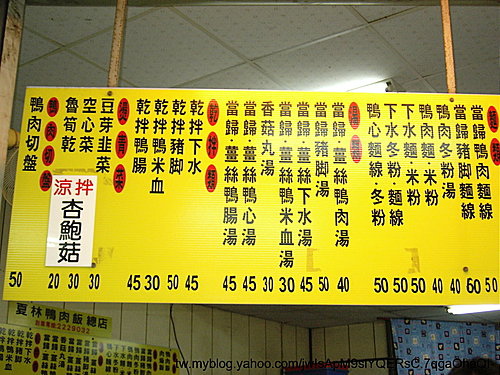 麵類
當歸鴨肉麵線
當歸豬脚麵線
鴨肉冬粉湯
鴨肉麵·米粉
下水麵·米粉
下水冬粉·麵線
鴨心麵線·冬粉
湯類
當歸·薑絲鴨肉湯
當歸豬脚湯
當歸·薑絲下水湯
當歸·薑絲鴨米血湯
香菇丸湯
當歸·薑絲鴨心湯
當歸·薑絲鴨腸湯
乾拌類
乾拌下水
乾拌豬脚
乾拌鴨米血
乾拌鴨腸
燙青菜
豆芽韭菜
空心菜
魯筍乾
鴨肉切盤
鴨肉切盤
涼拌
杏鮑菇
50 20 30 30 45 30 50 45 45 45 30 30 30 50 40 50 50 50 40 40 60 50
夏林鴨肉飯總店
2229032